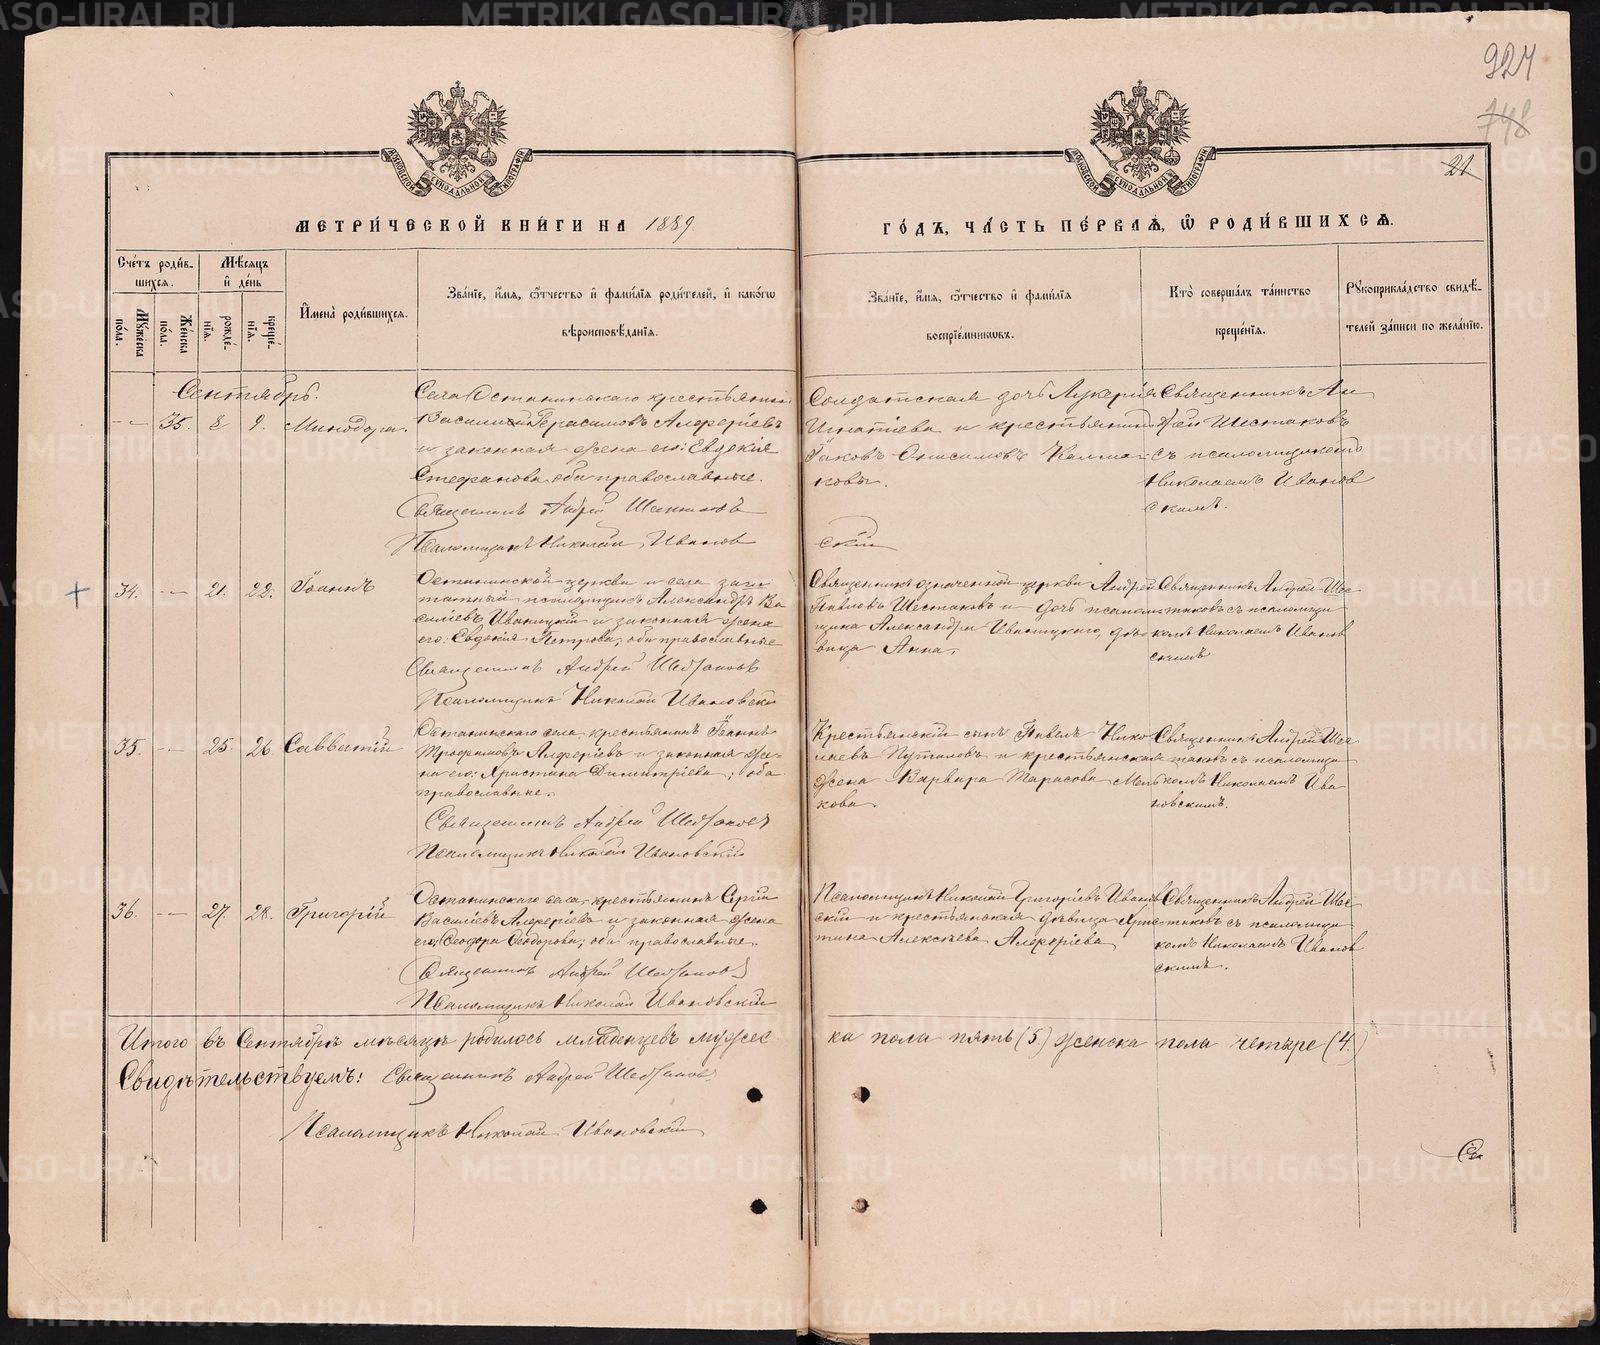 927
748
21
МОСКОВСКОЙ СѴНОДАЛЬНОЙ ТИПОГРАФІИ
МОСКОВСКОЙ СѴНОДАЛЬНОЙ ТИПОГРАФІИ
МЕТРИ́ЧЕСКОЙ КНИ́ГИ НА 1889
ГО́ДЪ, ЧА́СТЬ ПЕ́РВАѦ, Ѡ҆ РОДИ́ВШИХСѦ.
Сче́тъ роди́в-
шихсѧ.
Мꙋ́жеска пола.
Же́нска по́ла.
Мѣ́сѧцъ
и҆ де́нь
рожде́-
нїѧ.
креще́-
нїѧ.
И҆мена̀ роди́вшихсѧ.
Зва́нїе, и҆́мѧ, ѻ҆́тчество и҆ фами́лїѧ роди́телей, и҆ како́гѡ
вѣроисповѣ́данїѧ.
Зва́нїе, и҆́мѧ, ѻ҆́тчество и҆ фами́лїѧ
воспрїе́мникѡвъ.
Кто̀ соверша́лъ та́инство
креще́нїѧ.
Рꙋкоприкла́дство свидѣ́-
телей за́писи по жела́нїю.
Сентябрь.
-- 35. 8 9. Минодора.
Села Останинскаго крестьянинъ
Василий Герасимовъ Алферіевъ
и законная жена его: Евдокія
Стефанова, оба православные.
Священникъ Андрей Шестаковъ
Псаломщикъ Николай Иванов
Солдатская дочь Лукерія
Игнатіева и крестьянинъ
Іаковъ Онисимовъ Колма-
ковы.
скій
Священникъ Ан
дрей Шестаковъ
съ псаломщикомъ
Николаемъ Иванов
скимъ.
34. -- 21. 22. Іоаннъ
Останинской церкви и села зашт
татный псаломщикъ Александръ Ва
силіевъ Иваницкий и законная жена
его: Евдокія Петрова, оба православные
Священникъ Андрей Шестаковъ
Псаломщикъ Николай Ивановскій
Священникъ означенной церкви Андрей
Павловъ Шестаковъ и дочь псалом
щика Александра Иваницкаго, дѣ
вица Анна.
Священникъ Андрей Шес
таковъ съ псаломщи
комъ Николаемъ Иванов
скимъ
35. -- 25. 26 Савватій
Останинскаго села, крестьянинъ Іоаннъ
Трофимовъ Алферіевъ и законная же-
на его: Христина Димитріева; оба
православные.
Священникъ Андрей Шестаковъ
Псаломщикъ Николай Ивановскій
Крестьянский сынъ Павелъ Нико
лаевъ Путиловъ и крестьянская
жена Варвара Тарасова Мель
кова.
Священникъ Андрей Шес
таковъ съ псаломщи
комъ Николаемъ Ива
новскимъ.
36. -- 27. 28. Григорій
Останинскаго села, крестьянинъ Сергій
Василіевъ Алферіевъ и законная жена
его; Ѳеодора Ѳеодорова; оба православные.
Священникъ Андрей Шестаковъ
Псаломщикъ Николай Ивановскій
Псаломщикъ Николай Григоріевъ Иванов
скій и крестьянская дѣвица Хрис
тина Алексѣева Алферіева
Священникъ Андрей Шес
таковъ съ псаломщи
комъ Николаемъ Иванов
скимъ.
Итого въ Сентябрѣ мѣсяцѣ родилось младенцевъ мужес
ка пола пять (5.) женска пола четыре (4.)
Свидѣтельствуемъ: Священникъ Андрей Шестаковъ
Псаломщикъ Николай Ивановскій